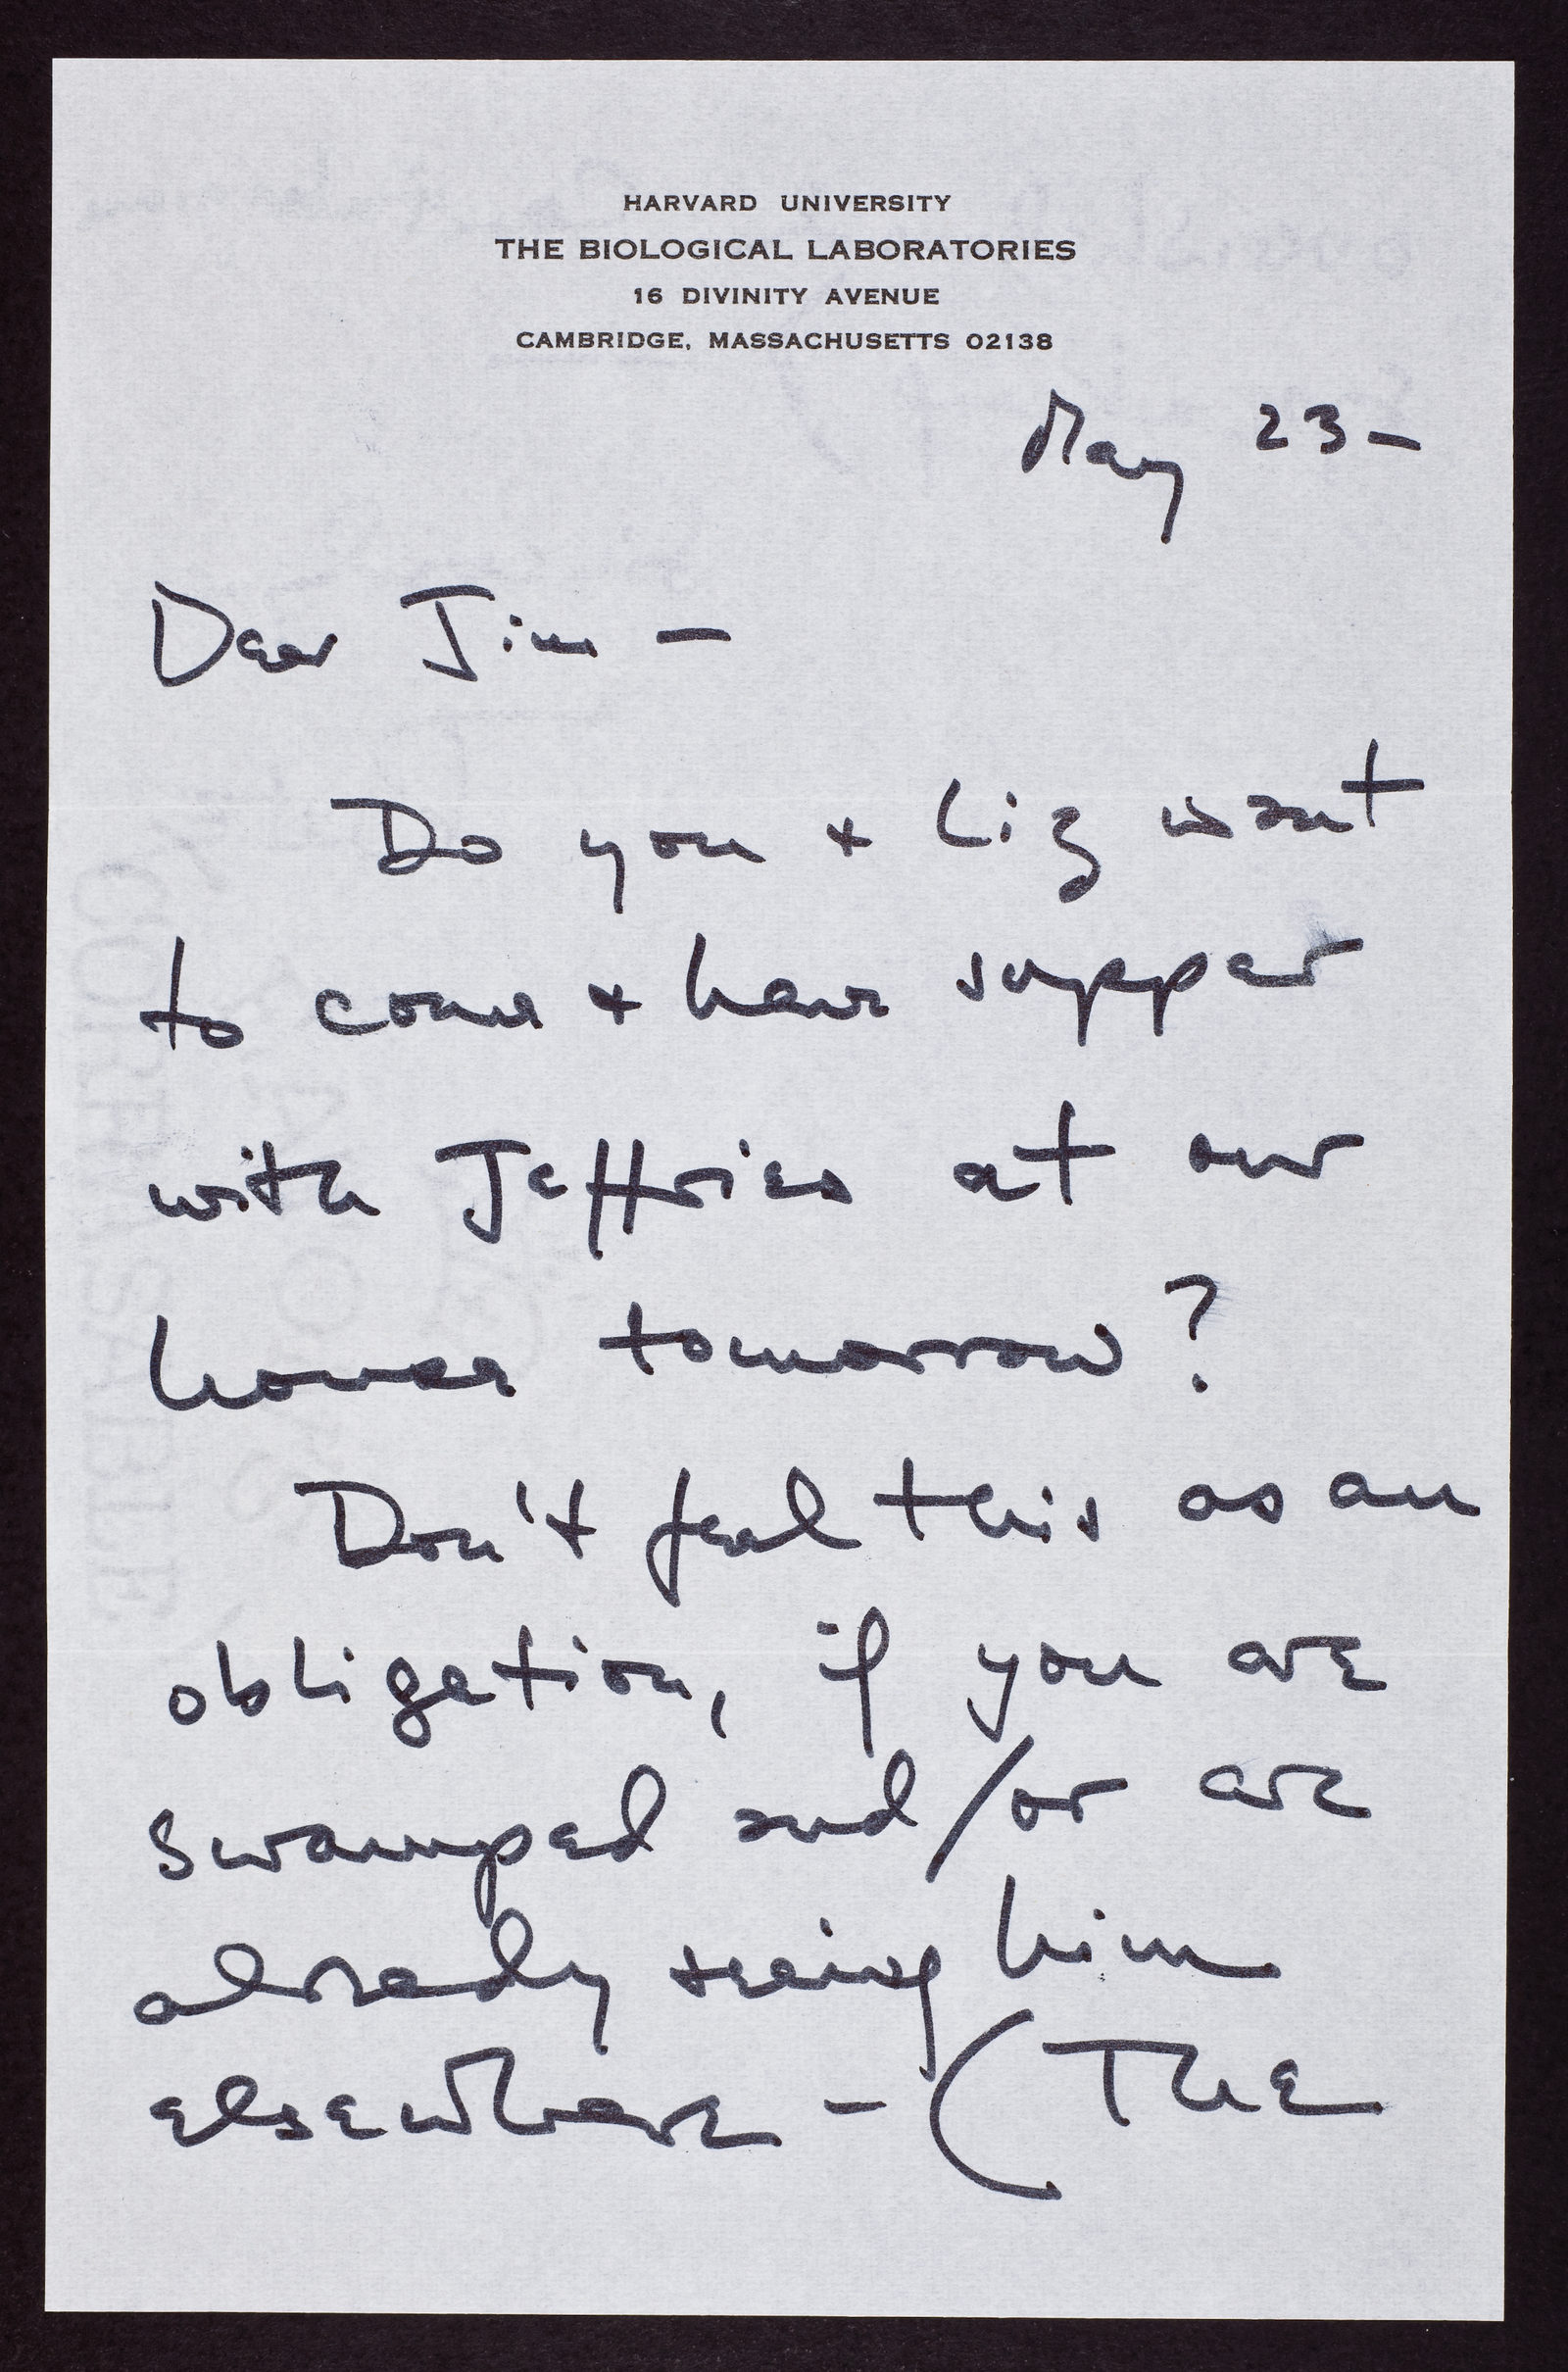 HARVARD UNIVERSITY
THE BIOLOGICAL LABORATORIES
16 DIVINITY AVENUE
CAMBRIDGE, MASSACHUSETTS 02138
May 23-
Dear Jim -
Do you + Liz want
to come + have supper
with Jeffries at our
house tomorrow?
Don't feel this as an
obligation, if you are
swamped and/or are
already seeing him
elsewhere - (The